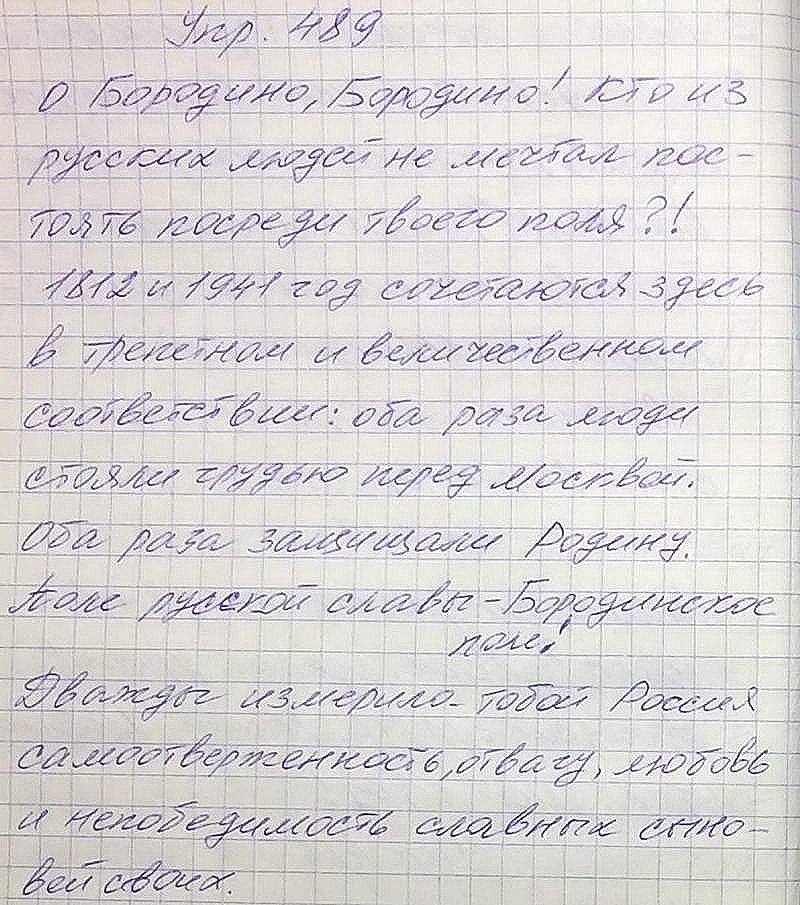 Упр. 489
О Бородино, Бородино! Кто из
русских людей не мечтал пос-
тоять посреди твоего поля?!
1812 и 1941 год сочетаются здесь
в трепетном и величественном
соответствии: оба раза люди
стояли грудью перед Москвой.
Оба раза защищали Родину.
Поле русской славы - Бородинское
поле!
Дважды измерило тобой Россия
самоотверженность, отвагу, любовь
и непобедимость славных сыно-
вей своих.